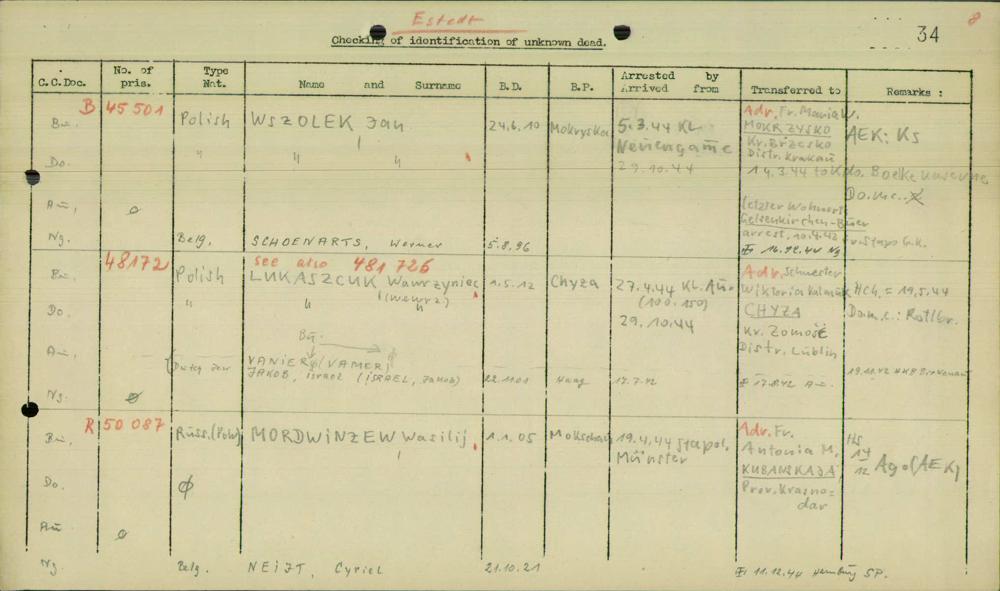 Estedt
8
Checking of identification of unknown dead.
34
C.C.Doc. No. of pris. Type Nat. Name and Surname B.D. B.P. Arrested by Arrived from Transferred to Remarks :
B 45 501
Bu. Polish WSZOLEK Jan 24.6.10 Mokryska 5.3.44 KL Neuengamme Adr. Fr. Maria W. MOKRZYSKO Kr. Brzesko Distr. Krakau AEK: Ks
Do. " " " 29.10.44 14.3.44 to
Au. ø letzter Wohnort Gelsenkirchen-Buer arrest. 10.4.42
Ng. Belg. SCHOENARTS, Werner 5.8.96 16.12.44 Ng
48172 see also 481 726
Bu. Polish LUKASZCUK Wawrzyniec 1.5.12 Chyza 27.4.44 KL. Au. (100.150) Adr. Schwester Wiktoria CHYZA Kr. Zomość Distr. Lublin 19.5.44
(Wawrz)
Do. " " " 29.10.44
Bu.
Au. Jew VANIER / (VAMER) JAKOB, Israel (ISRAEL, Jakob) 22.11.01 Haag 17.7.42 17.8.42 Au. 19.11.42 HKB Birkenau
Ng. ø
R 50 087
Bu. Russ. (Pole) MORDWINZEW Wasilij 1.1.05 Mokschan 19.4.44 Stapol. Münster Adr. Fr. Antonia M. KUBANSKAJA Prov. Krasno=dar Hs 14 12 Ago (AEK)
Do. ø
Au. ø
Ng. Belg. NEIJT, Cyriel 21.10.21 11.12.44 Hamburg SP.